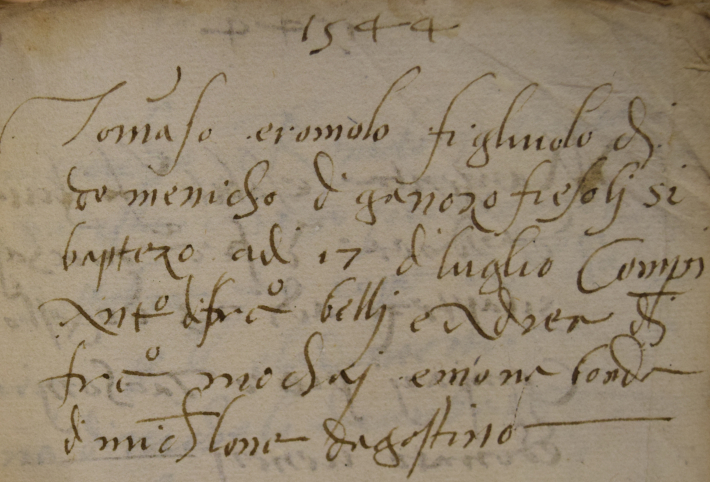 1544
Tomaso eromolo figliuolo di
domenicho di ganozo fiesolj si
baptezo adi 17 di luglio Compri
Anto di frco bellj e Andrea di
frco mochaj emona
di michlone dagostino